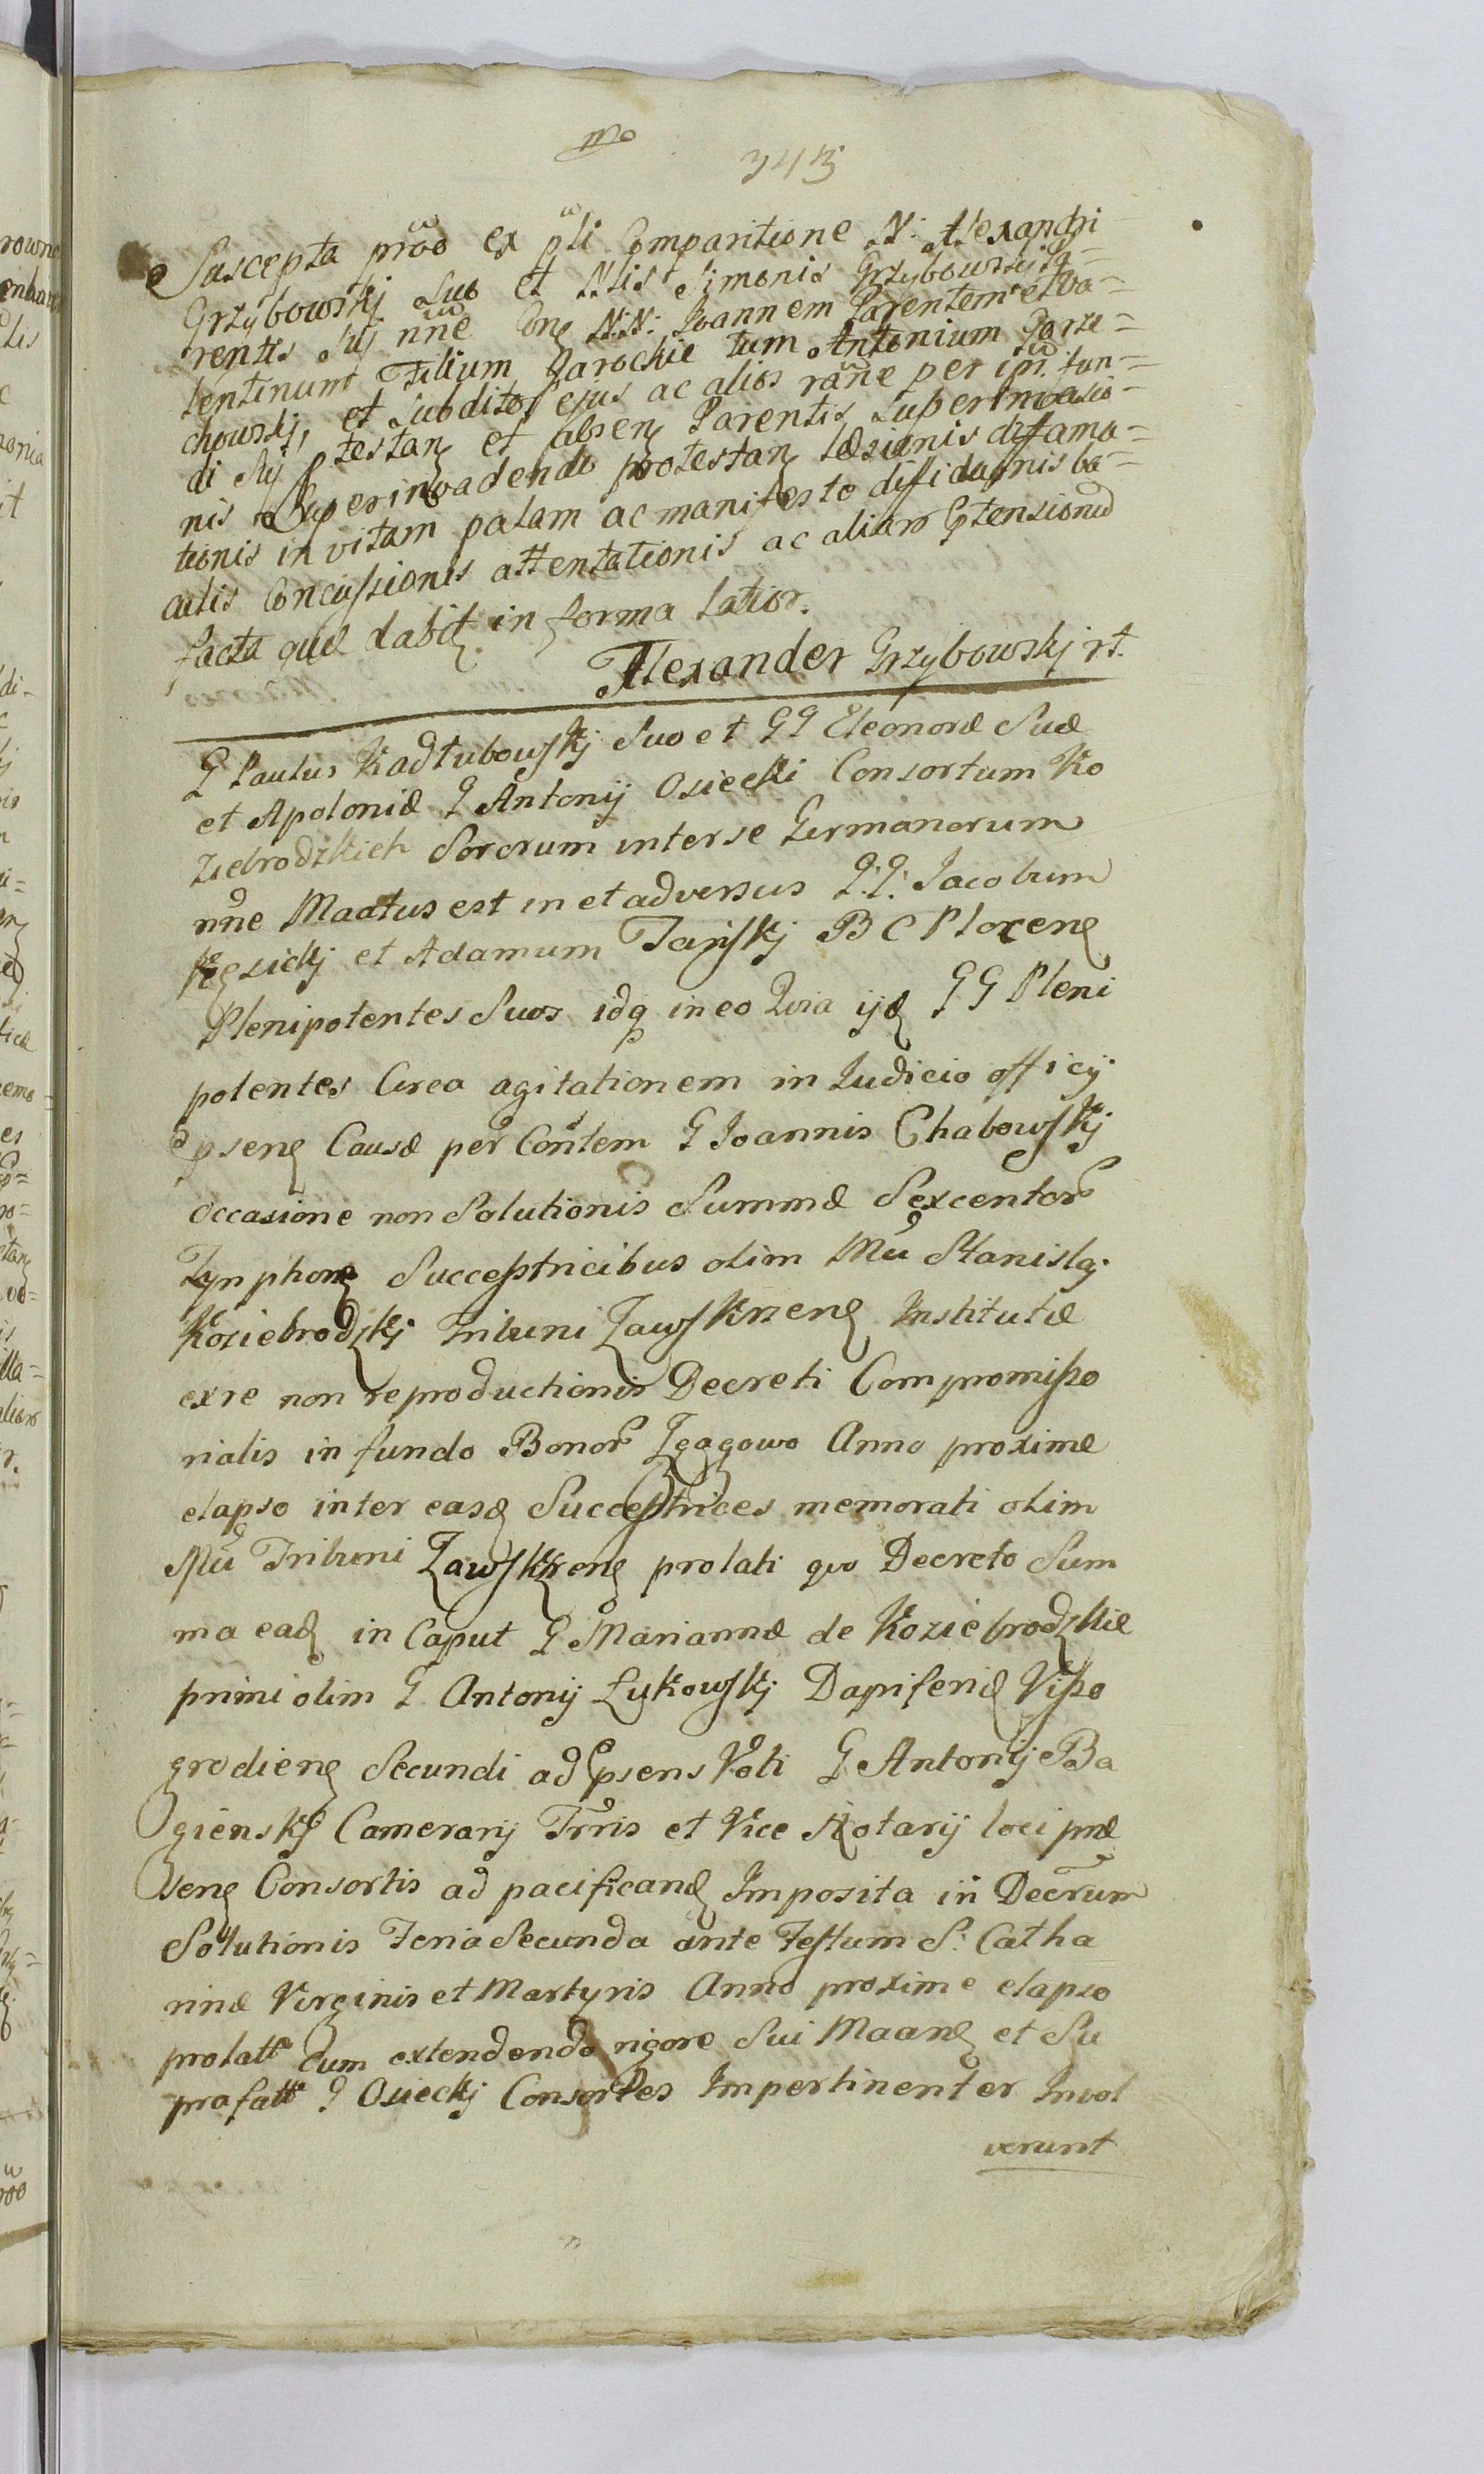 mo
345
Suscepta prōo ex płi Comparitione N: Alexandri
Grzybowskj Suo et Nlis Simonis Grzybowskj Pa=
rentis Sui nñe Con NN: Joannem Parentem et Va=
lentinum Filium Darockie tum Antonium Gorze=
chowskj, et Subditos ejus ac alios rañe per ipr. fun=
di Sui testan et absen Parentis Superinvasio=
nis Superinvadendo protestan læsionis diffama=
tionis in vitam palam ac manifeste diffidaõnis ba=
culis Concussionis attentationis ac aliaro Ptensionū
facta quæ dabit in forma latior.
Alexander Grzybowskj rt.
G Paulus Kadłubowskj Suo et GG Eleonoræ Suæ
et Apoloniæ G Antonij Osiecki Consortum Ko
ziebrodzkich Sororum inter se Germanorum
nñe Maatus est in et adversus G:G: Jacobum
Kęsickj et Adamum Tańskj B C Plocen
Plenipotentes Suos idq in eo Qvia ijd GG Pleni
potentes Circa agitationem in Judicio officij
psen Causæ per Conŕtem G Joannis Chabowskj
occasione non Solutionis Summæ Sexcentor
Tynphon Successtricibus olim Mci Stanislai
Koziebrodzkj Tribuni Zawskrzen Institutæ
exre non reproductionis Decreti Compromisso
rialis in fundo Bonor Zgagowo Anno proxime
elapso inter easd Successtrices memorati olim
Mci Tribuni Zawskrzen prolati qvo Decreto Sum
ma ead in Caput G Mariannæ de Koziebrodzkie
primi olim G Antonij Łukowskj Dapiferid Visso
grodien Secundi ad psens Voti G Antonij Ba
gienskj Camerarij Trris et Vice Notarij loci præ
sen Consortis ad pacificand Imposita in Decrum
Solutionis Feria Secunda ante Festum S: Catha
rinæ Virginis et Martyris Anno proxime elapso
prolatt Cum extendendo rigore Sui Maand et Su
prafatt G Osieckj Consortes Impertinenter Invol
verunt